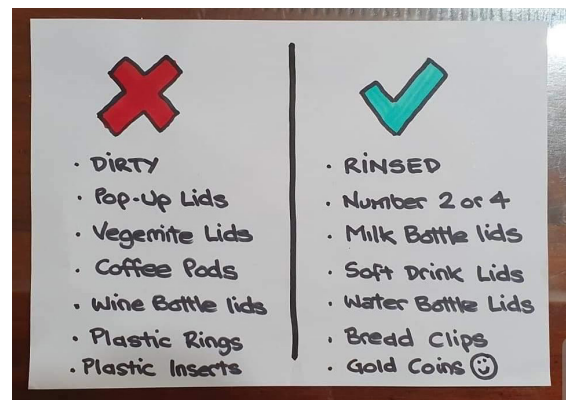 · DIRTY
· Pop-Up Lids
· Vegemite Lids
· Coffee Pods
· Wine Bottle lids
· Plastic Rings
· Plastic Inserts
· RiNSED
· Number 2 or 4
· Milk Bottle lids
· Soft Drink Lids
· Water Bottle Lids
· Bread Clips
· Gold Coins ☺